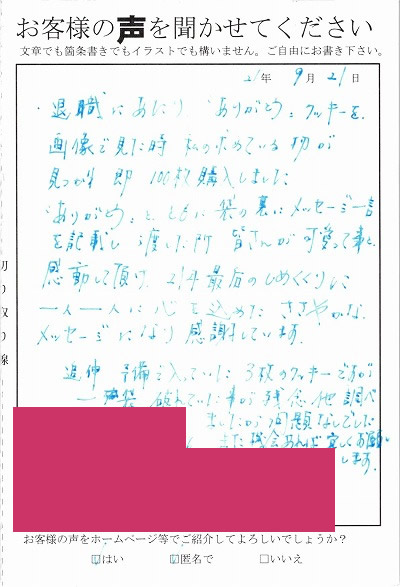 お客様の声を聞かせてください
文章でも箇条書きでもイラストでも構いません。ご自由にお書き下さい。
21年 9月21日
・退職にあたり、「ありがとう」クッキーを
画像で見た時 私の求めている物が
見つかり 即 100枚購入しました
「ありがとう」と ともに 袋の裏に メッセージ一言
を記載し 渡した所 皆さんが 可愛って事と
感動して頂け 21年最后のしめくくりに
一人一人に 心を込めた ささやかな
メッセージになり 感謝しています。
追伸 予備で入っていた 3枚のクッキーですが
一袋 破れていた事が 残念 他 調べ
ましたが 問題なしでした
また機会あれば 宜しくお願い
します。
切り取り線
お客様の声をホームページ等でご紹介してよろしいでしょうか?
☑はい ☑匿名で □いいえ